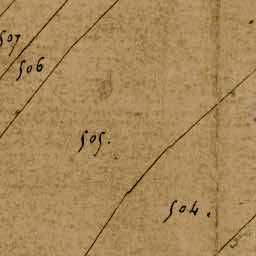 507
506
505.
504.